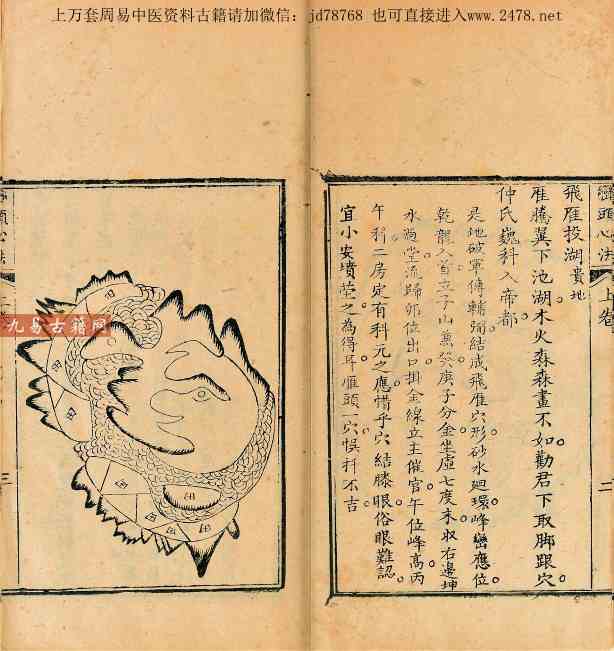 上万套周易中医资料古籍请加微信：jd78768 也可直接进入www.2478.net
巒頭心法 上卷 二
飛雁投湖貴地
雁騰翼下池湖。木火森森畫不如。勸君下取脚跟穴。
仲氏巍科入帝都。
是地破軍傳輔弼結成飛雁穴形砂水廻環。峰巒應位。
乾龍入首立子山兼癸。庚子分金坐虛七度。末收右邊坤
水過堂。流歸卯位出口。掛金線立主催官。午位峰高。丙
午科二房定有科元之應。惜乎穴結膝眼。俗眼難認。
宜小安墳塋之為得耳。雁頭一穴。悞扦不吉。
頭心法
三
田
田
田
田
田
九易古籍网